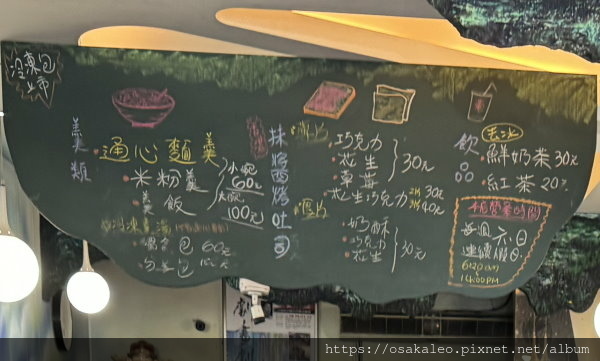 冷凍包
上市
羹類
通心麵羹
米粉羹
羹飯
小碗
60元
大碗
100元
60元
抹醬烤吐司
薄片
巧克力
花生
草莓
30元
花生巧克力 2片 30元
2片 40元
厚片
奶酥
巧克力
花生
30元
飲品
去冰
鮮奶茶 30元
紅茶 20元
營業時間
每週六、日
連續假日
6:20am
14:00PM
https://osakaleo.pixnet.net/album